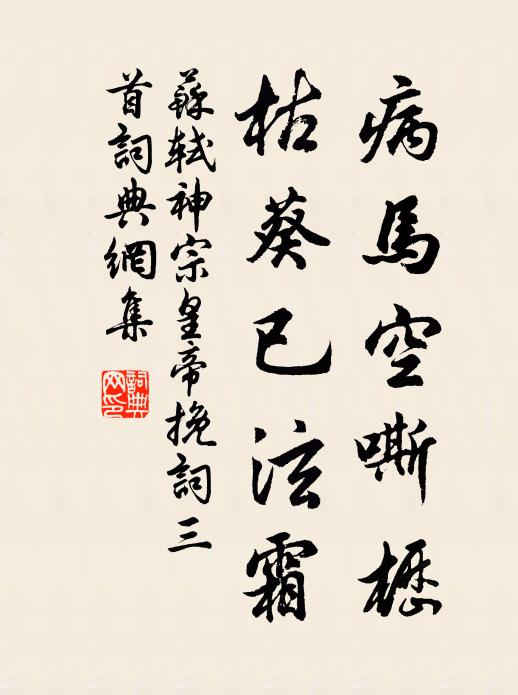 病馬空嘶櫪
枯葵已泫霜
蘇軾神宗皇帝挽詞三
首詞典網集
詞典
网印